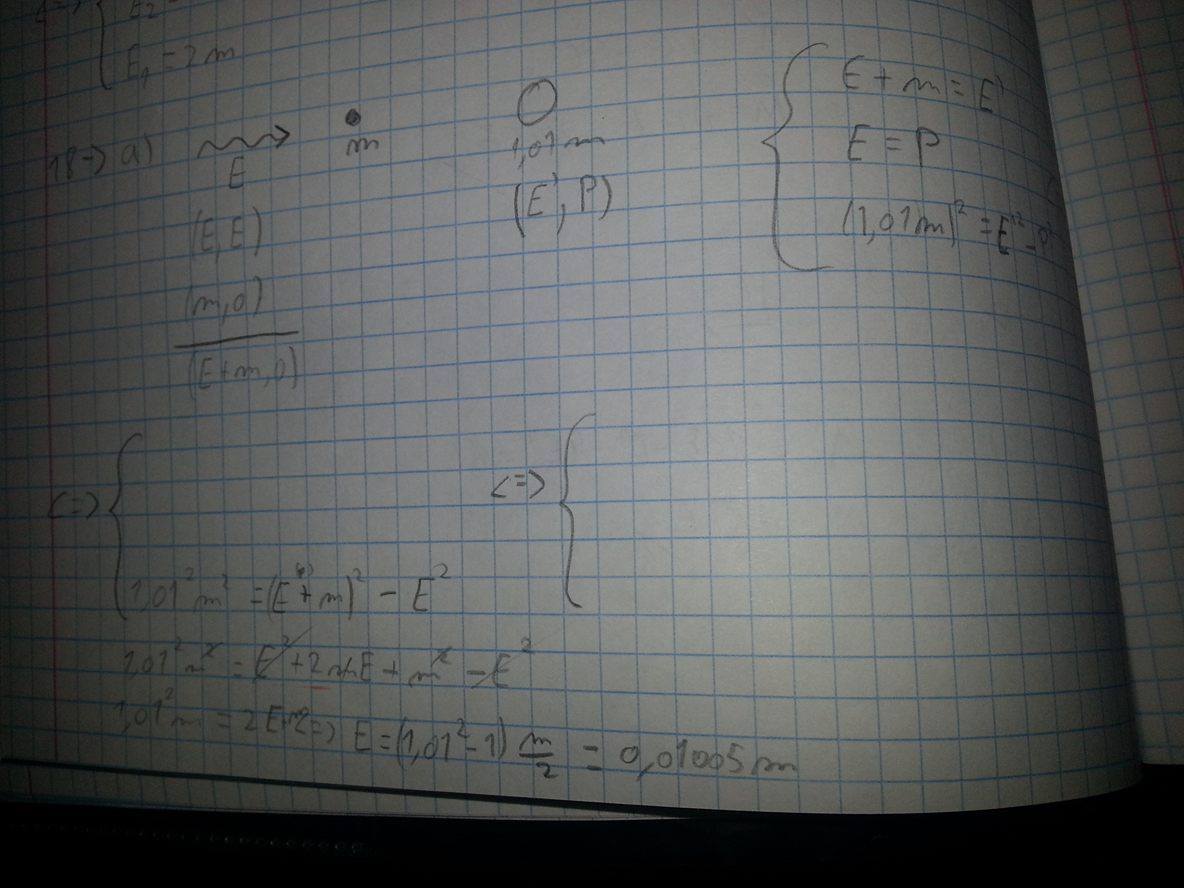 E₂
E₁ = 2m
18-) a) E m 1,01m
(E, E) (E', P)
(m, 0)
(E+m, 0)
E + m = E'
E = P
(1,01m)² = E'² - P²
<=> { <=> {
1,01²m² = (E + m)² - E²
1,01²m² = E² + 2mE + m² - E²
1,01²m = 2E => E = (1,01² - 1) m/2 = 0,01005m